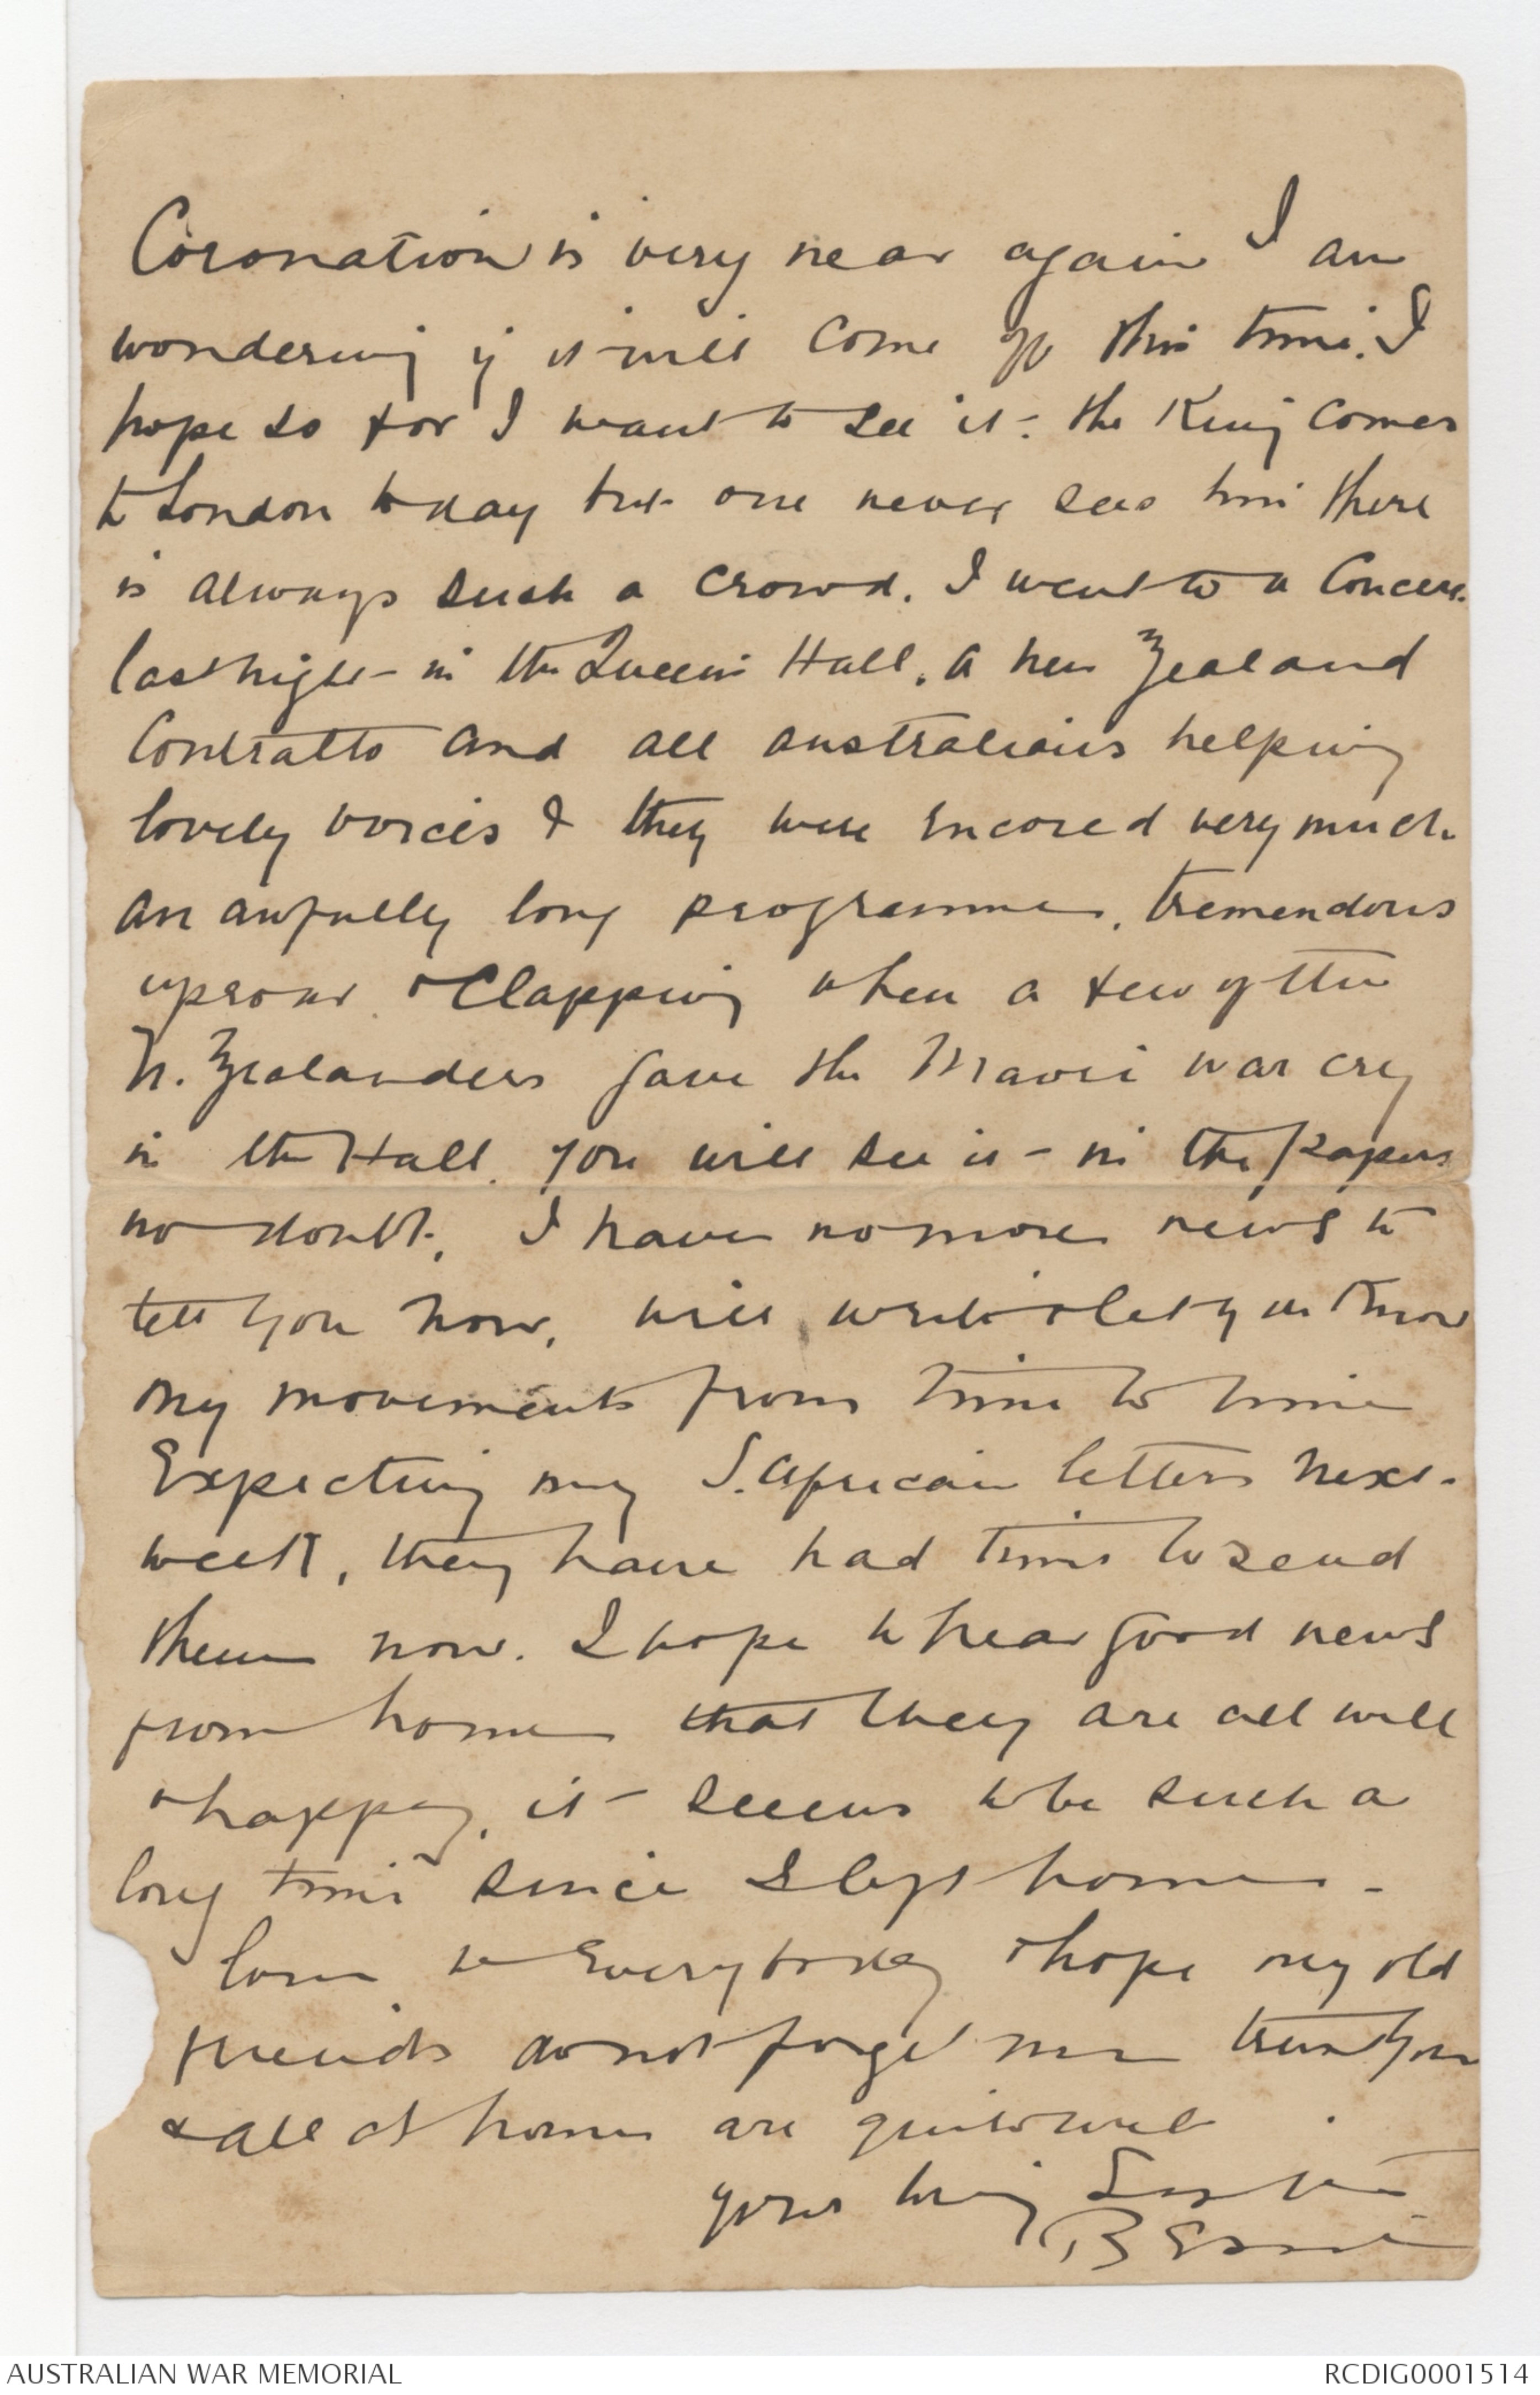 Coronation is very near again I am
wondering if it will come off this time. I
hope so for I want to see it - the King comes
to London today but one never sees him there
is always such a crowd. I went to a Concert
last night - in the Queens Hall. A New Zealand
Contralto and all australians helping
lovely voices & they were encored very much
an awfully long programme, tremendous
uproar & Clapping when a few of the
N. Zealanders gave the Maori war cry
in the Hall. you will see it - in the papers
no doubt. I have no more news to
tell you now, will write & let you know
my movements from time to time
Expecting my S. African letters next
week, they have had time to send
them now. I hope to hear good news
from home that they are all well
& happy, it - seems to be such a
long time since I left home -
love to Everybody & hope my old
friends do not forget me trust you
& all at home are quite well.
your loving Sister
Bessie
AUSTRALIAN WAR MEMORIAL
RCDIG0001514